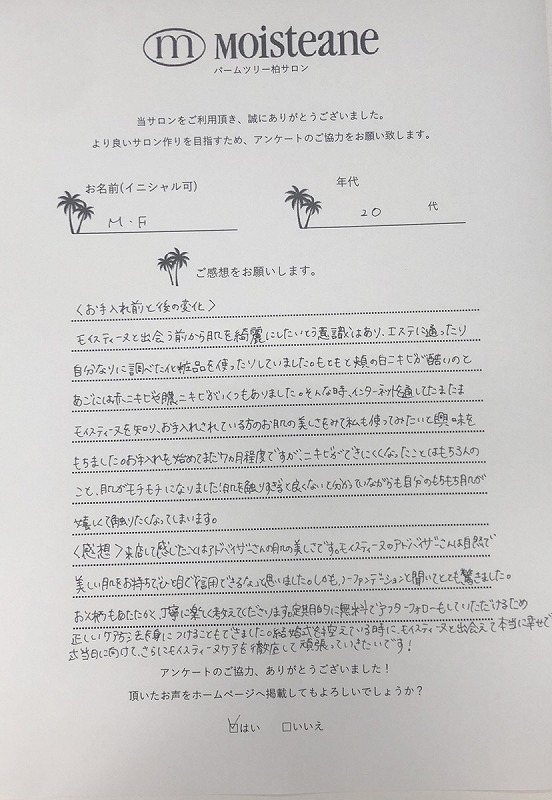 m MOisteane
パームツリー柏サロン
当サロンをご利用頂き、誠にありがとうございました。
より良いサロン作りを目指すため、アンケートのご協力をお願い致します。
お名前(イニシャル可)
年代
M・F
20 代
ご感想をお願いします。
〈お手入れ前と後の変化〉
モイスティーヌと出会う前から肌を綺麗にしたいという意識はあり、エステに通ったり
自分なりに調べた化粧品を使ったりしていました。もともと頬の白ニキビが酷いのと
あごには赤ニキビや膿ニキビがいくつもありました。そんな時、インターネットを通してたまたま
モイスティーヌを知り、お手入れされている方のお肌の美しさをみて私も使ってみたいと興味を
もちました。お手入れを始めてまだ7ヵ月程度ですが、ニキビができにくくなったことはもちろんの
こと、肌がモチモチになりました!肌を触りすぎると良くないと分かっていながらも自分のもちもち肌が
嬉しくて触りたくなってしまいます。
〈感想〉来店して感じたことはアドバイザーさんの肌の美しさです。モイスティーヌのアドバイザーさんは自然で
美しい肌をお持ちで、ひと目で信用できるなと思いました。しかも、ノーファンデーションと聞いてとても驚きました。
お人柄もあたたかく、丁寧に楽しく教えてくださります。定期的に無料でアフターフォローもしていただけるため
正しいケア方法を身につけることもできました。結婚式を控えている時に、モイスティーヌと出会えて本当に幸せで
式当日に向けて、さらにモイスティーヌケアを徹底して頑張っていきたいです!
アンケートのご協力、ありがとうございました!
頂いたお声をホームページへ掲載してもよろしいでしょうか?
☑はい □いいえ